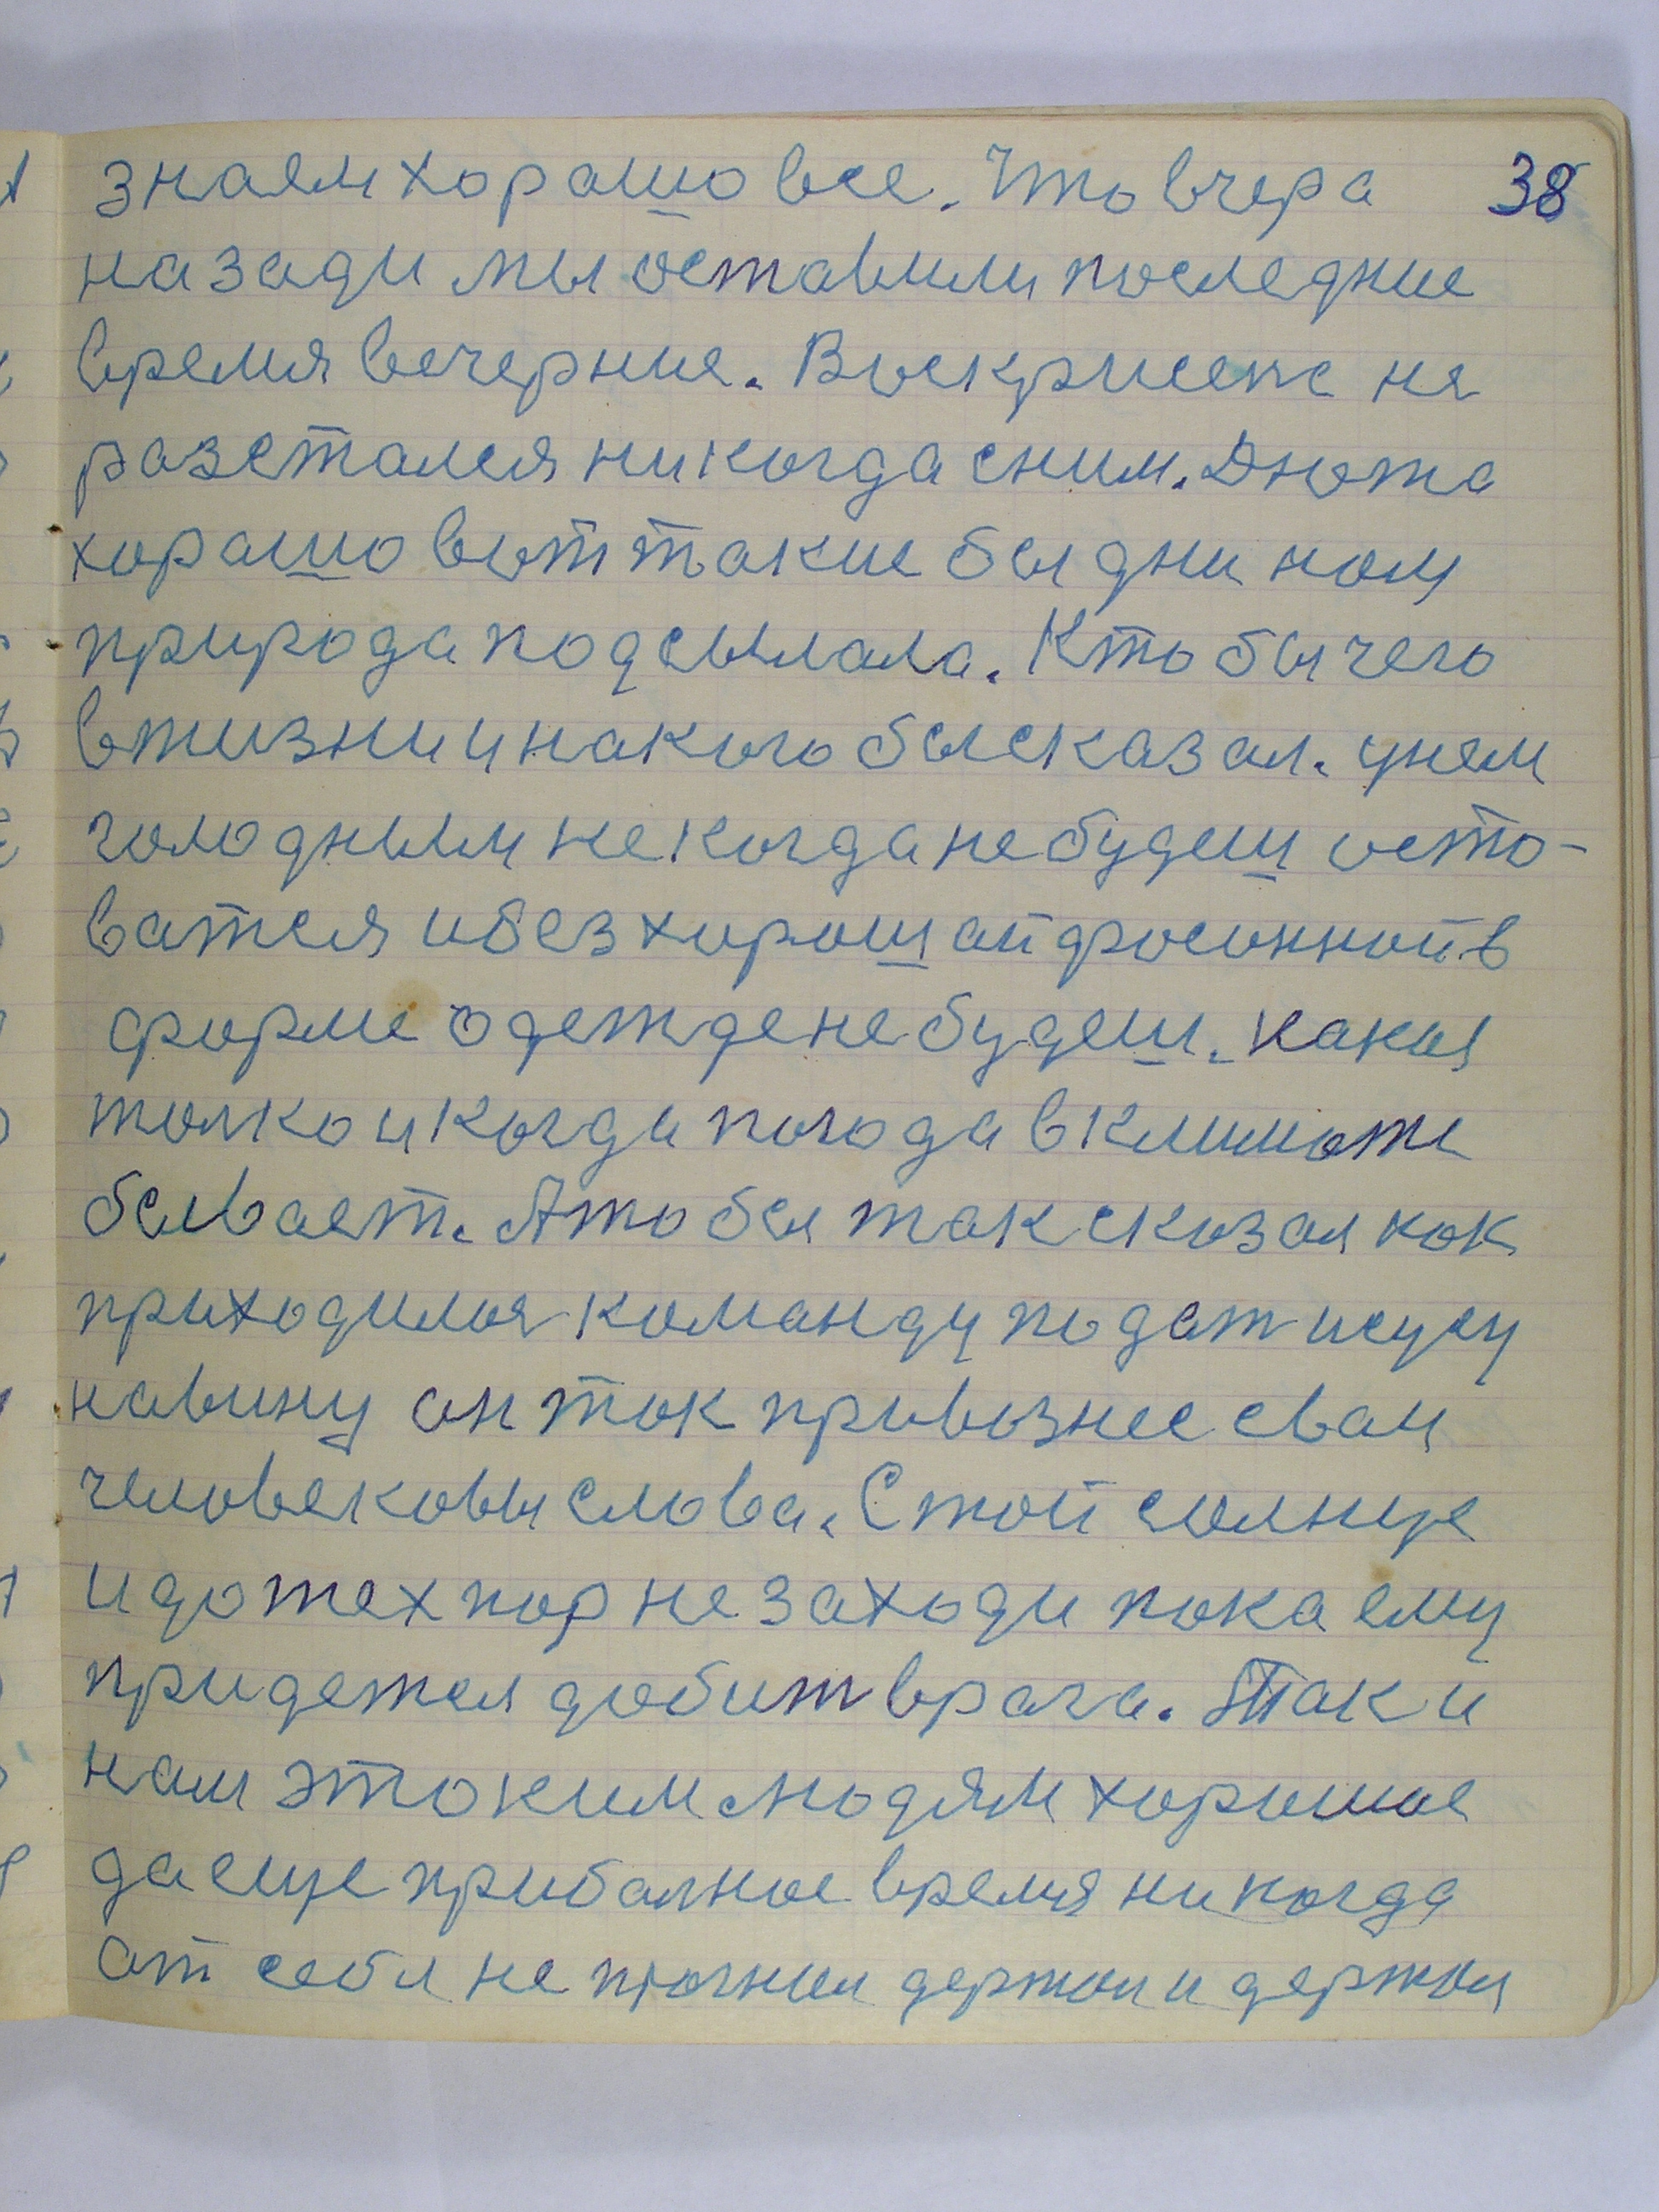 знаем хорашо все. Что вчера 38
назади мы оставили последние
время вечерние. Воскрисепс не
разстался никогда сним. Дюжа
хорашо вот такие бы дни нам
природа подсылала. Кто бы чего
вжизни и накого бы сказал. унем
голодным некогда не будеш оста-
ватся и без хорошай фосонной в
форме одежде не будеш. какая
толко и когда погода в климате
бывает. Ато бы так сказал как
приходилоя команду подат исусу
навину он так привознес сваи
человековы слова. Стой солнце
и до тех пор не заходи пока ему
придется добит врага. Так и
нам этоким людям хорошое
да еще прибалное время никогда
от себя не прогнал держал и держал